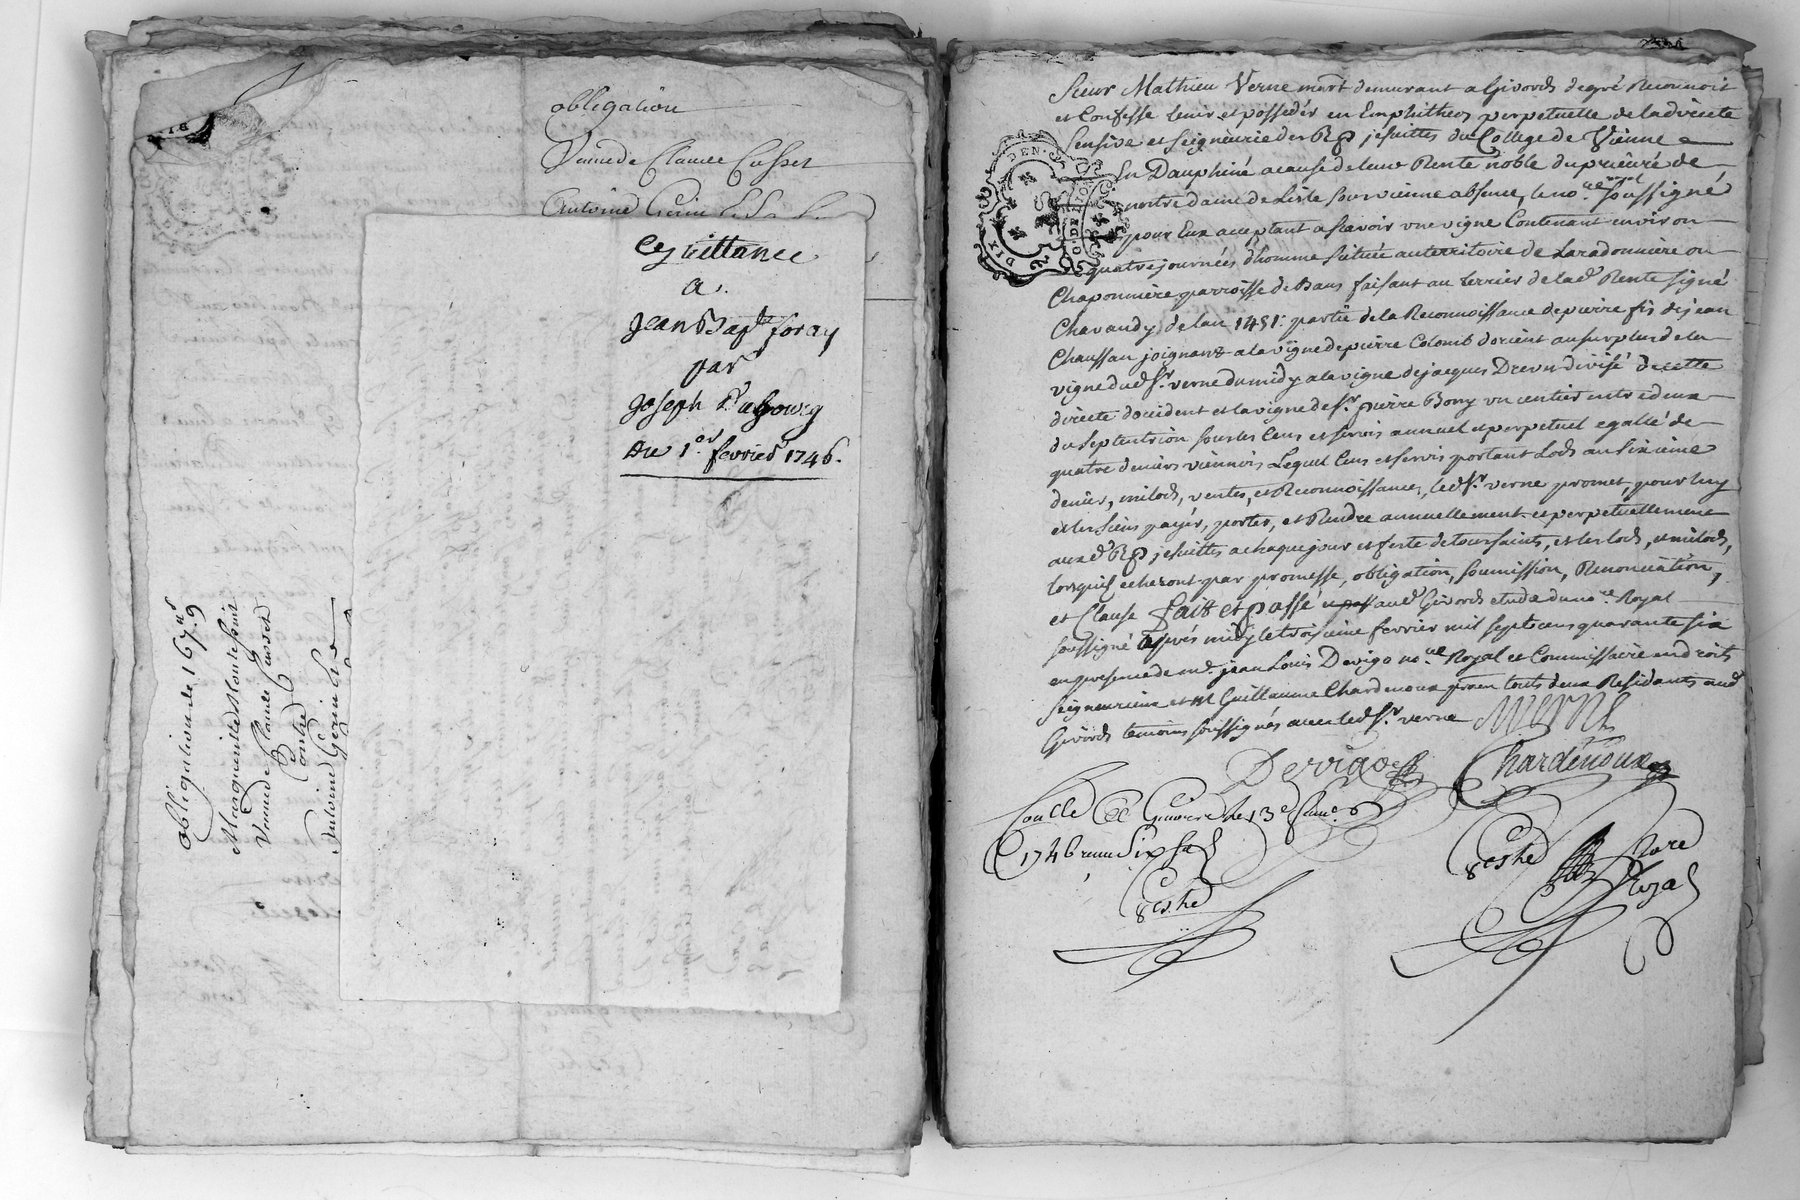 obligation
Veuve de Claude Cusset
Antoine Gerin
Cy quittance
a
Jean Bapte foray
par
Joseph
Du 1er fevrier 1746.
obligation de 1679
Marguerite Montessuit
Veuve de Claude Cusset
Contre
Antoine Gerin
Sieur Mathieu Verne mart demeurant a Givords de gré Reconnoit
et Confesse tenir et posseder en Emphitheos perpetuelle de la directe
Censive et Seigneurie des RP jesuittes du College de Vienne
En Dauphiné a cause de leur Rente noble du prieuré de
nostre dame de Liste sous vienne absens, le nore royal soussigné
pour Eux acceptant ascavoir une vigne Contenant environ
quatre journées d'homme scituée au territoire de Laradonnière ou
Chaponnière parroisse de Bans faisant au terrier de lade Rente signé
Chavandy de lan 1451: partie de la Reconnoissance de pierre fis de jean
Chaussau joignant a la vigne de pierre Colomb dorient au surplus de la
vigne dud Sr. verne du midy a la vigne de jacques Drevu divisé de cette
directe d'occident et la vigne de Sr. pierre Bony un sentier entre deux
du septentrion sous les Cens et servis annuel et perpetuel egalté de
quatre deniers viennois Lequel Cens et servis portant Lods au sixieme
denier, milods, ventes, et Reconnoissances, led Sr. verne promet, pour luy
et les siens payer, porter, et Rendre annuellement et perpetuellement
auxd RP jesuittes a chaque jour et feste de toussaints, et les lods, et milods,
lorsquil echeront par promesse, obligation, soumission, Renonciation,
et Clause fait et passé aud Givords etude du nore Royal
soussigné apres midy le troisieme fevrier mil sept cens quarante six
en presence de me. jean Louis Dervigo nore Royal et Commissaire en droits
seigneuriaux et Mr Guillaume Chardenoux praen. touts deux Residants aud
Givords temoins soussignés avec led Sr. verne
M VERNE
Dervigo
Chardenoux
Conllé a Givors le 13e
1746 reçu Six
nore
Royal